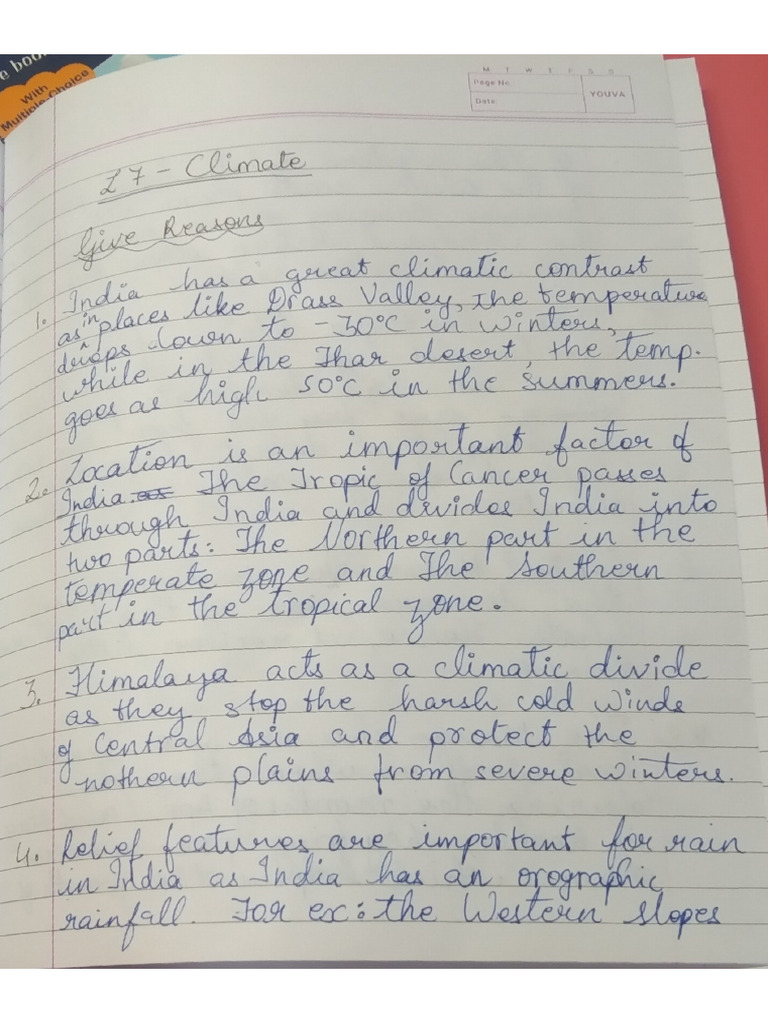 e boo
With
Multiple Choice
M T W T F S S
Page No.
Date:
YOUVA
L7 - Climate
Give Reasons
1. India has a great climatic contrast
as in places like Drass Valley, the temperature
drops down to -30°C in winters,
while in the Thar desert, the temp.
goes as high 50°C in the summers.
2. Location is an important factor of
India. as The Tropic of Cancer passes
through India and divides India into
two parts: The Northern part in the
temperate zone and The Southern
part in the tropical zone.
3. Himalaya acts as a climatic divide
as they stop the harsh cold winds
of Central Asia and protect the
nothern plains from severe winters.
4. Relief features are important for rain
in India as India has an orographic
rainfall. For ex: the Western slopes